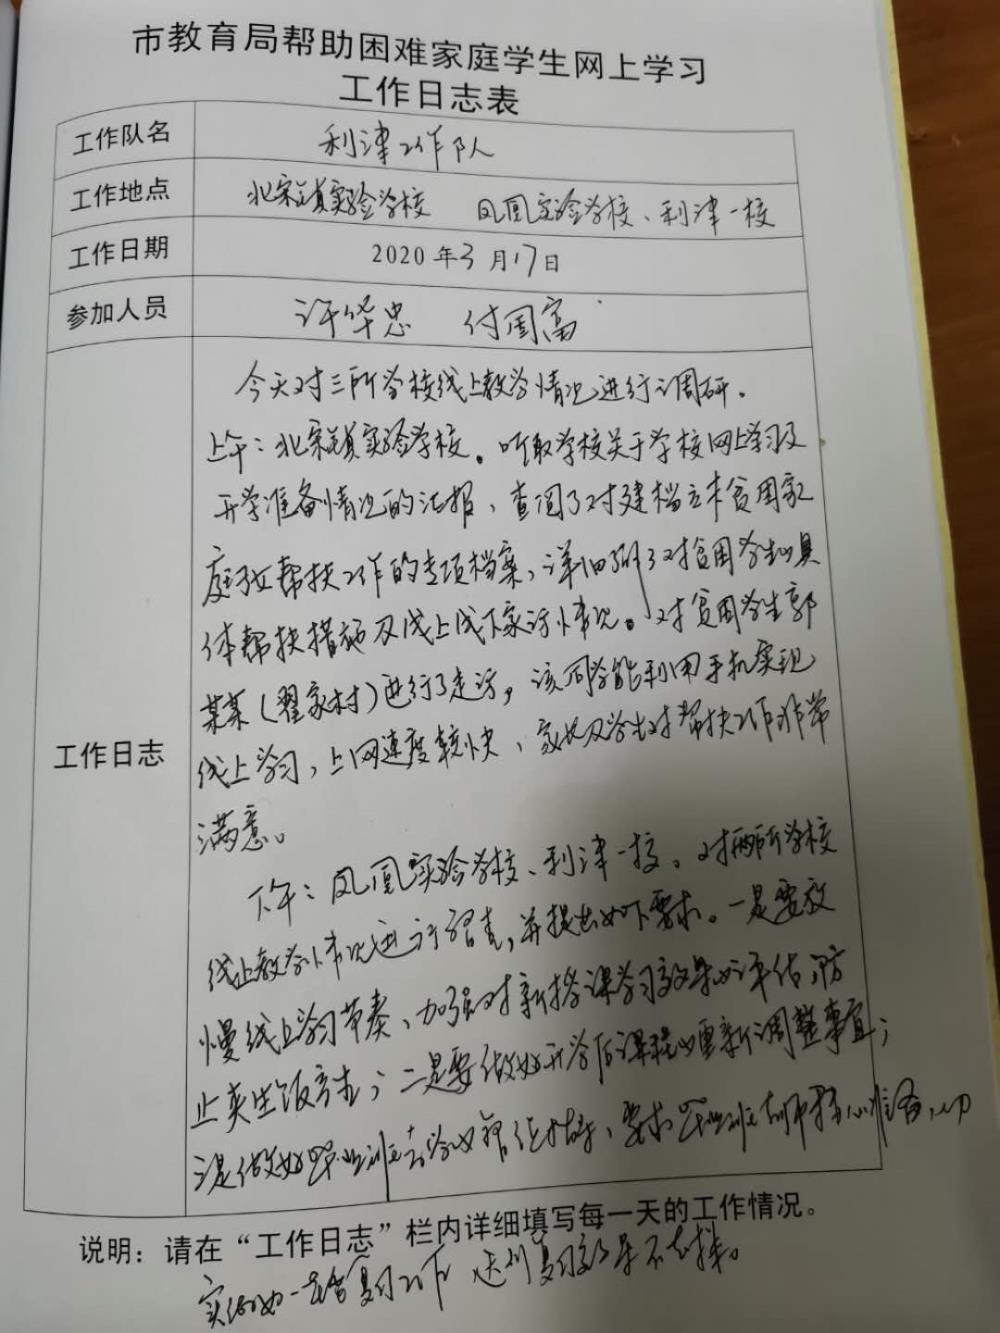 市教育局帮助困难家庭学生网上学习
工作日志表
工作队名 利津工作队
工作地点 北宋镇实验学校 凤凰实验学校、利津一校
工作日期 2020年3月17日
参加人员 许华忠 付国富
工作日志
今天对三所学校线上教学情况进行调研。
上午：北宋镇实验学校。听取学校关于学校网上学习及
开学准备情况的汇报，查阅了对建档立卡贫困家
庭孩子帮扶工作的专项档案，详细了解了对贫困学生的具
体帮扶措施及线上线下家访情况。对贫困学生郭
某某（翟家村）进行了走访，该同学能利用手机实现
线上学习，上网速度较快，家长及学生对帮扶工作非常
满意。
下午：凤凰实验学校、利津一校。对两所学校
线上教学情况进行督查，并提出如下要求。一是要放
慢线上学习节奏，加强对新授课学习效果的评估，防
止夹生饭产生；二是要做好开学后课程的重新调整事宜；
三是做好毕业班的工作，要求毕业班教师精心准备，切
说明：请在“工作日志”栏内详细填写每一天的工作情况。
实做好复习工作 达到复习效果不走样。